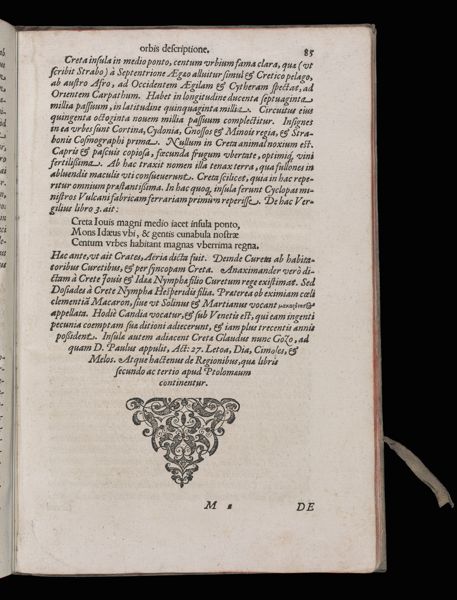 orbis descriptione. 85
Creta insula in medio ponto, centum vrbium fama clara, quā (vt
scribit Strabo) à Septentrione Ægæo alluitur simul & Cretico pelago,
ab austro Afro, ad Occidentem Ægilam & Cytheram spectat, ad
Orientem Carpathum. Habet in longitudine ducenta septuaginta
millia passium, in latitudine quinquaginta millia. Circuitus eius
quingenta octoginta novem millia passium complectitur. Insignes
in ea vrbes sunt Cortina, Cydonia, Gnossos & Minois regia, & Stra-
bonis Cosmographi prima. Nullum in Creta animal noxium est.
Capris & pascuis copiosa, fœcunda frugum vbertate, optimiq, vini
fertilissima. Ab hac traxit nomen illa tenax terra, qua fullones in
abluendis maculis vti consueverunt. Creta scilicet, quia in hac repe-
ritur omnium præstantissima. In hac quoq, insula ferunt Cyclopas mi-
nistros Vulcani fabricam ferrariam primùm reperisse. De hac Ver-
gilius libro 3. ait:
Creta Iouis magni medio iacet insula ponto,
Mons Idæus vbi, & gentis cunabula nostræ
Centum vrbes habitant magnas vberrima regna.
Hac ante, vt ait Crates, Aëria dicta fuit. Deinde Curem ab habita-
toribus Curetibus, & per syncopam Creta. Anaximander verò di-
ctam à Crete Iouis & Ideæ Nymphæ filio Curetum rege existimat. Sed
Dosiades à Crete Nympha Hesperidis filia. Præterea ob eximiam cœli
clementiā Macaron, siue vt Solinus & Martianus vocant
appellata. Hodiè Candia vocatur, & sub Venetis est, qui eam ingenti
pecunia coemptam sua ditioni adiecerunt, & iam plus trecentis annis
possident. Insulæ autem adiacent Cretæ Glaudus nunc Gozo, ad
quam D. Paulus appulit, Act: 27. Letoa, Dia, Cimoles, &
Melos. Atque hactenus de Regionibus, quæ libris
secundo ac tertio apud Ptolomæum
continentur.
M 2 DE